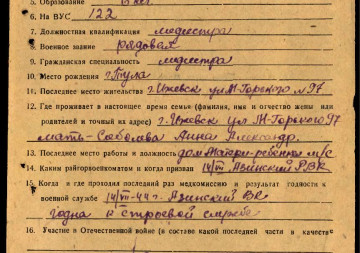 5. Образование
6. На ВУС 122
7. Должностная квалификация медсестра
8. Военное звание рядовая
9. Гражданская специальность медсестра
10. Место рождения г. Тула
11. Последнее место жительства г. Ижевск ул. М-Горького № 97
12. Где проживает в настоящее время семья (фамилия, имя и отчество жены или
родителей и точный их адрес) г. Ижевск ул. М-Горького 97
мать-Соболева Анна Александр.
13. Последнее место работы и должность дом Матери-ребенка м/с
14. Каким райгорвоенкоматом и когда призван 14/VII Азинский РВК
15. Когда и где проходил последний раз медкомиссию и результат годности к
военной службе 14/VII-44 г. Азинский ВК
годна к строевой службе
16. Участие в Отечественной войне (в составе какой последней части в качестве